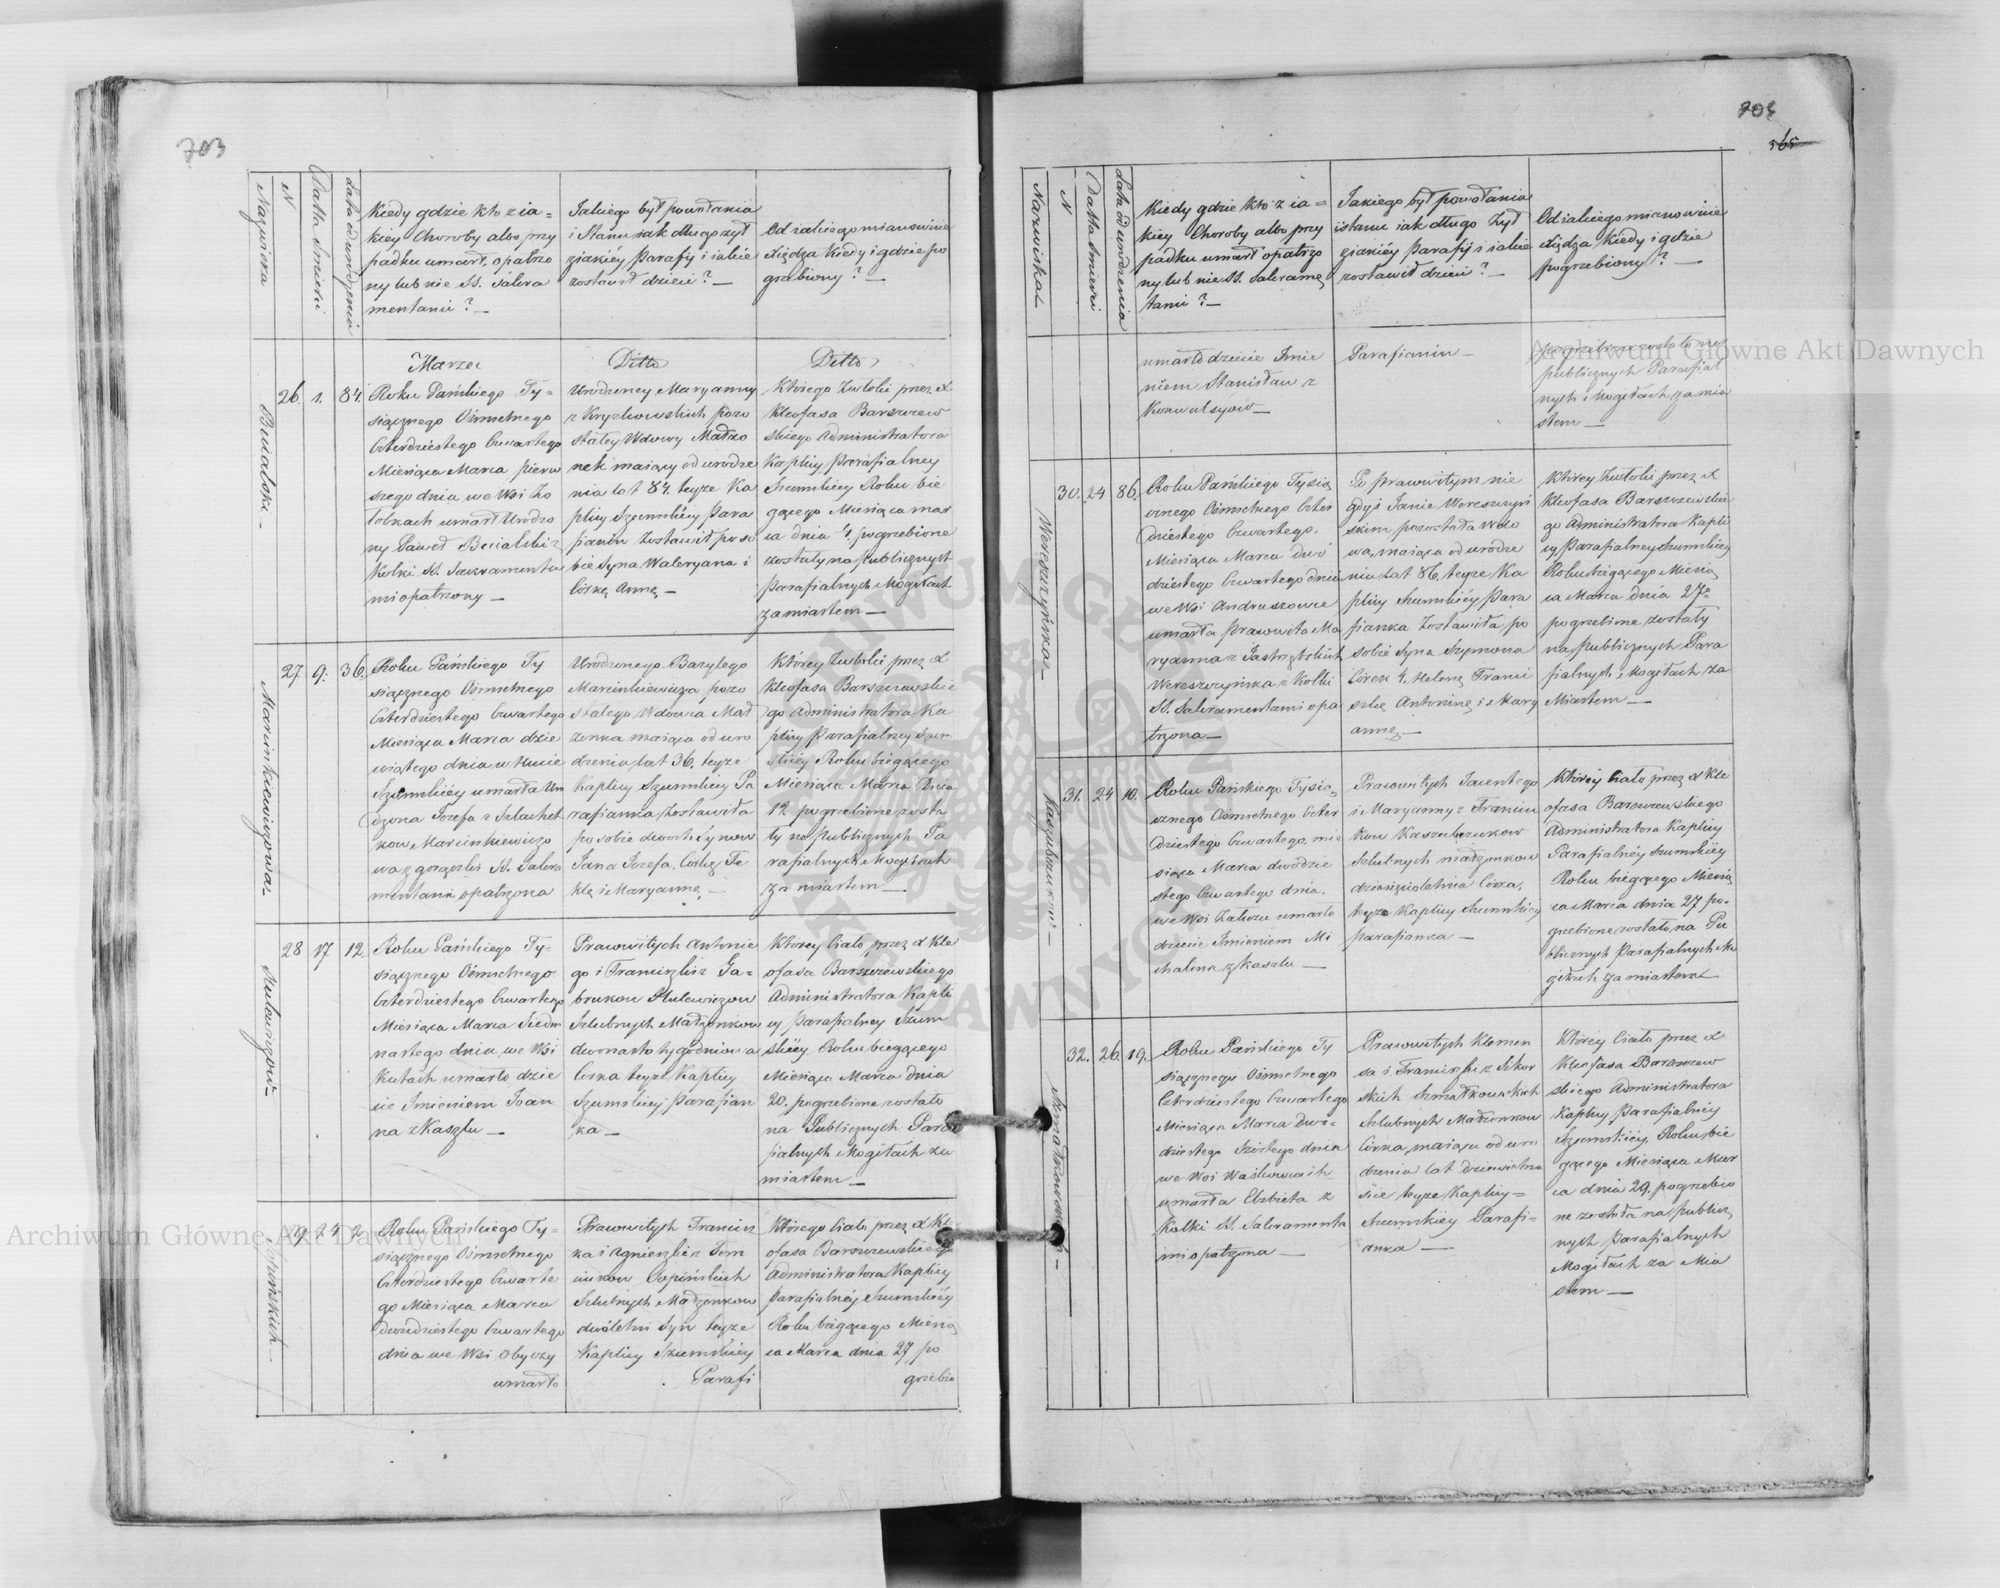 703
Nazwiska
N
Datta Smierci
Lata od urodzenia
Kiedy gdzie kto z ia=
kiey Choroby albo przy
padku umarł, opatrzo
ny lub nie SS. Sakra
mentami? —
Jakiego był powołania
i Stanu iak długo żył
z iakiéy Parafij i iakie
zostawił dzieci? —
Od iakiego mianowicie
Xiędza Kiedy i gdzie po
grzebiony? —
26.
1.
84.
Marzec
Roku Pańskiego Ty=
siącznego Ośmsetnego
Czterdziestego Czwartego
Miesiąca Marca pierw
szego dnia we Wsi Żo
łobkach umarł Urodzo
ny Paweł
Kolki SS. Sakramenta
mi opatrzony —
Ditto
Urodzoney Maryanny
z Kryzkowskich pozo
stałey Wdowy Małżo
nek maiący od urodze
nia lat 84. teyże Ka
plicy Szumskiéy Para
fianin Zostawił po so
bie Syna Waleryana i
Córkę Annę —
Ditto
Którego Zwłoki przez X
Kleofasa Barszczew
skiego Administratora
Kaplicy Parafialney
Szumskiey Roku bie
gącego Miesiąca mar
ca dnia 4. pogrzebione
zostały na publicznych
Parafialnych Mogiłach
za miastem —
27
9.
36.
Marcinkiewiczowa —
Roku Pańskiego Ty
siącznego Ośmsetnego
Czterdziestego Czwartego
Miesiąca Marca dzie
wiątego dnia w Hucie
Szumskiey umarła Uro
dzona Jozefa z Szlachet
kow Marcinkiewiczo
wa z gorączki SS. Sakra
mentami opatrzona
Urodzonego Bazylego
Marcinkiewicza pozo
stałego Wdowca Mał
żonka maiąca od uro
dzenia lat 36. teyże
Kaplicy Szumskiey Pa
rafianka, Zostawiła
po sobie dwoch Synow
Jana Jozefa, Corkę Te
klę i Maryannę —
Którey Zwłoki przez X
Kleofasa Barszczewskie
go Administratora Ka
plicy Parafialney Szum
skiéy Roku biegącego
Miesiąca Marca Dnia
12 pogrzebione zosta
ły na Publicznych Pa
rafialnych Mogiłach
za miastem —
28
17
12
Roku Pańskiego Ty=
siącznego Ośmsetnego
Czterdziestego Czwartego
Miesiąca Marca Siedm
nastego dnia we Wsi
Kutach umarło dzie
cie Imieniem Joan
na z Kaszlu —
Prawowitych Antonie
go i Franciszki z Ga=
brukow Hulewiczow
Szlubnych Małżonkow
dwonasto tygodniowa
Córka teyże Kaplicy
Szumskiey Parafian
ka —
Ktorey Ciało przez X Kle
ofasa Barszczewskiego
Administratora Kapli
cy Parafialney Szum
skiéy Roku biegącego
Miesiąca Marca dnia
20. pogrzebione zostało
na Publicznych Para
fialnych Mogiłach za
miastem —
29
24
2
Roku Pańskiego Ty=
siącznego Ośmsetnego
Czterdziestego Czwarte
go Miesiąca Marca
dwudziestego Czwartego
dnia we Wsi Obyczy
umarło
Prawowitych Francisz
ka i Agnieszki z Tom
czukow Sopińskich
Szlubnych Małżonkow
dwóletni Syn teyże
Kaplicy Szumskiéy
Parafi
Którego Ciało przez X Kle
ofasa Barszczewskiego
Administratora Kaplicy
Parafialnéy Szumskiéy
Roku biegącego Miesią
ca Marca dnia 27 po
grzebio
704
365
Nazwiska —
N
Datta Smierci
Lata od urodzenia
Kiedy gdzie kto z ia=
kiey Choroby albo przy
padku umarł opatrzo
ny lub nie SS. Sakramę
tami? —
Jakiego był powołania
i stanu iak długo Żył
z iakiéy Parafij i iakie
zostawił dzieci? —
Od iakiego mianowicie
Xiędza Kiedy i gdzie
pogrzebiony? —
umarło dziecie Imie
niem Stanisław z
Konwulsyow —
Parafianin —
pogrzebione zostało na
publicznych Parafial
nych Mogiłach za mia
stem —
30.
24
86.
Wereszczyńska —
Roku Pańskiego Tysią
cznego Ośmsetnego Czter
dziestego Czwartego,
Miesiąca Marca dwó
dziestego Czwartego dnia
we Wsi Andruszowce
umarła Prawowita Ma
ryanna z Jastrzębskich
Wereszczyńska z Kolki
SS. Sakramentami opa
trzona —
Po prawowitym nie
gdyś Janie Wereszczyń
skim pozostała Wdo
wa, maiąca od urodze
nia Lat 86. teyże Ka
plicy Szumskiéy Para
fianka Zostawiła po
sobie Syna Szymona
Córek 4. Helenę, Franci
szkę Antoninę i Mary
annę —
Którey Zwłoki przez X
Kleofasa Barszczewskie
go Administratora Kapli
cy Parafialney Szumskiey
Roku biegącego Miesią
ca Marca dnia 27o
pogrzebione zostały
na publicznych Para
fialnych Mogiłach za
Miastem —
31.
24
10.
Roku Pańskiego Tysią
cznego Ośmsetnego Czter
dziestego Czwartego, mie
siąca Marca dwódzie
stego Czwartego dnia,
we Wsi Załozu umarło
dziecie Imieniem Mi
chalina z Kaszlu —
Prawowitych Jacentego
i Maryanny z Franciu
kow Kaszubczukow
Szlubnych małżonkow
dziesięcioletnia Córka,
teyże Kaplicy Szumskiey
parafianka —
Którey Ciało przez X Kle
ofasa Barszczewskiego
Administratora Kaplicy
Parafialnéy Szumskiéy
Roku biegącego Miesią
ca Marca dnia 27 po=
grzebione zostało, na Pu
blicznych Parafialnych Mo
giłach za miastem
32.
26.
19.
Roku Pańskiego Ty
siącznego Ośmsetnego
Czterdziestego Czwartego
Miesiąca Marca dwu=
dziestego Szóstego dnia
we Wsi Waśkowcach
umarła Elżbieta z
Kolki SS. Sakramenta
mi opatrzona —
Prawowitych Klemen
sa i Franciszki z Sikor
skich Szmatkowskich
Szlubnych Małżonkow
Córka, maiąca od uro
dzenia lat dziewietna
ście teyże Kaplicy=
Szumskiéy Parafi=
anka —
Którey Ciało przez X
Kleofasa Barszczew
skiego Administratora
Kaplicy Parafialnéy
Szumskiéy Roku bie
gącego Miesiąca Mar
ca dnia 29. pogrzebio
ne zostało na publicz
nych Parafialnych
Mogiłach za Mia
stem —
Archiwum Główne Akt Dawnych
Archiwum Główne Akt Dawnych